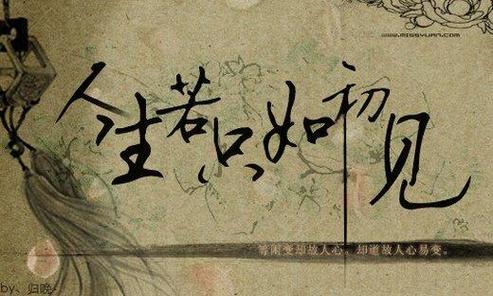 www.missyuan.com
人生若只如初见
等闲变却故人心，却道故人心易变。
by、归晚